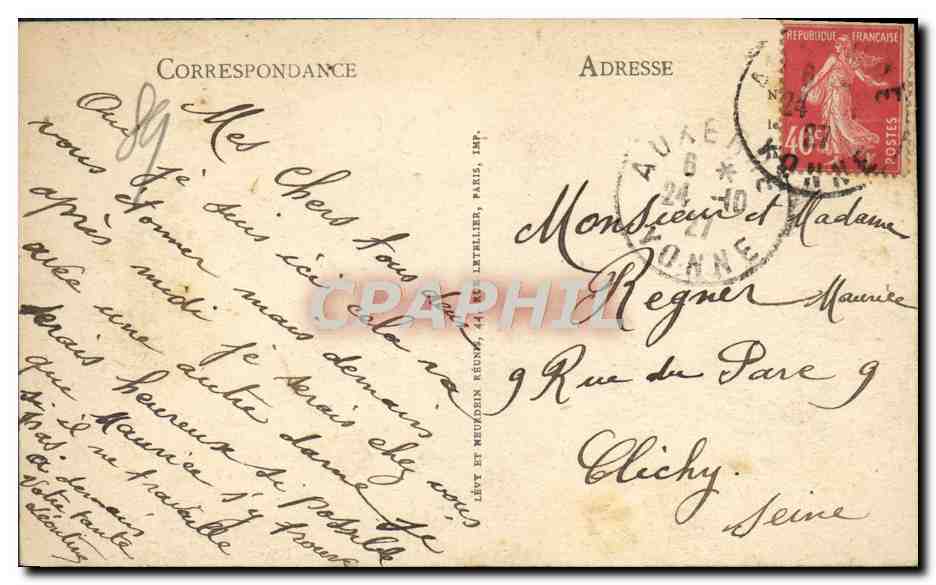 CORRESPONDANCE
89
Mes chers tous deux
Oui je suis ici cela va
vous étonner mais demain
après midi je serais chez vous
avec une autre dame je
serais heureuse si possible
que Maurice s'y trouve
si il ne travaille
pas.
a demain
Votre tante
LÉVY ET NEURDEIN RÉUNIS, 44, RUE LETELLIER, PARIS, IMP.
CPAPHIL
ADRESSE
REPUBLIQUE FRANÇAISE
40c
POSTES
AUXERRE
6 *
24 -10
27
YONNE
Monsieur et Madame
Regner Maurice
9 Rue du Parc 9
Clichy.
Seine